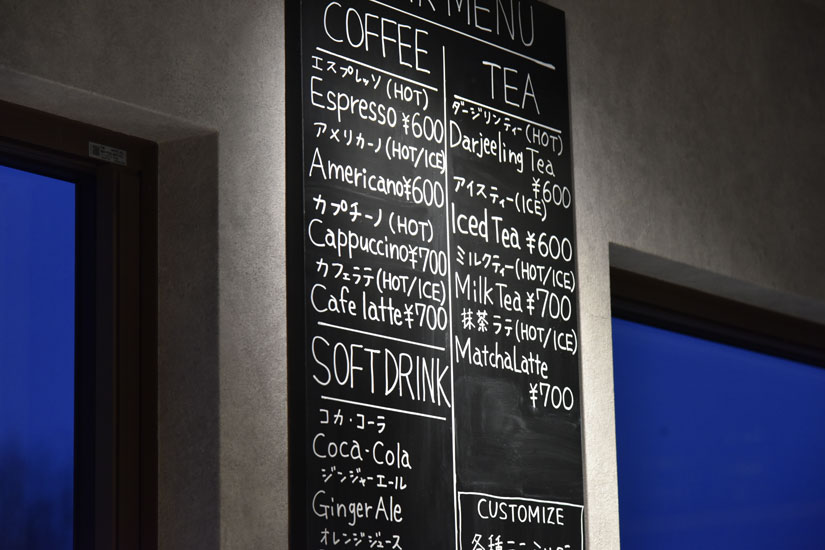 MENU
COFFEE
エスプレッソ (HOT)
Espresso ¥600
アメリカーノ (HOT/ICE)
Americano ¥600
カプチーノ (HOT)
Cappuccino ¥700
カフェラテ (HOT/ICE)
Cafe latte ¥700
SOFT DRINK
コカ・コーラ
Coca-Cola
ジンジャーエール
Ginger Ale
オレンジジュース
TEA
ダージリンティー (HOT)
Darjeeling Tea
¥600
アイスティー (ICE)
Iced Tea ¥600
ミルクティー (HOT/ICE)
Milk Tea ¥700
抹茶ラテ (HOT/ICE)
Matcha Latte
¥700
CUSTOMIZE
各種